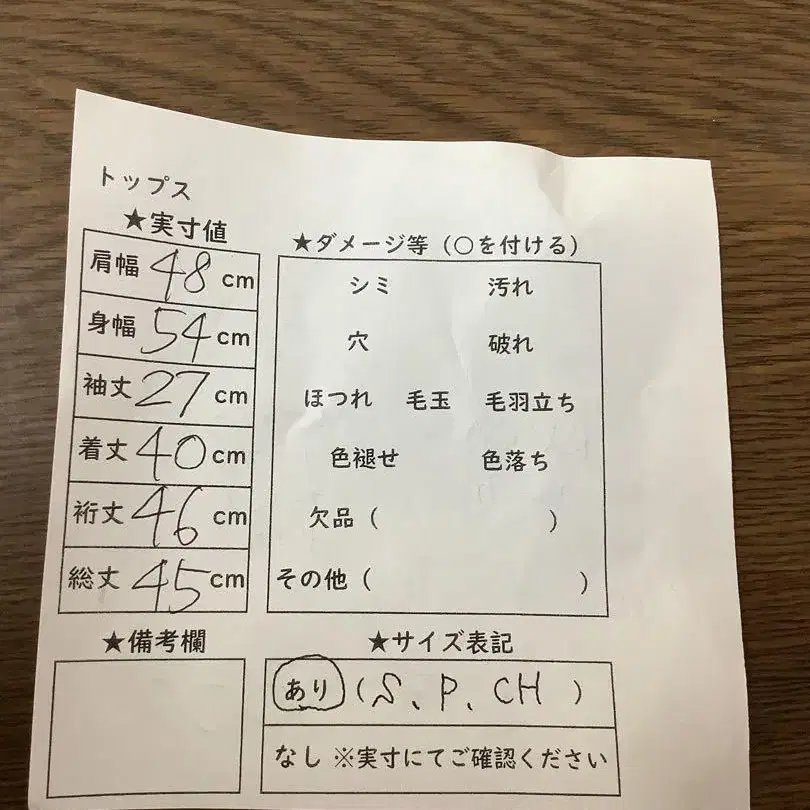 トップス
★実寸値
肩幅 48 cm
身幅 54 cm
袖丈 27 cm
着丈 40 cm
裄丈 46 cm
総丈 45 cm
★ダメージ等（○を付ける）
シミ 汚れ
穴 破れ
ほつれ 毛玉 毛羽立ち
色褪せ 色落ち
欠品（ ）
その他（ ）
★備考欄
★サイズ表記
あり（S、P、CH ）
なし ※実寸にてご確認ください